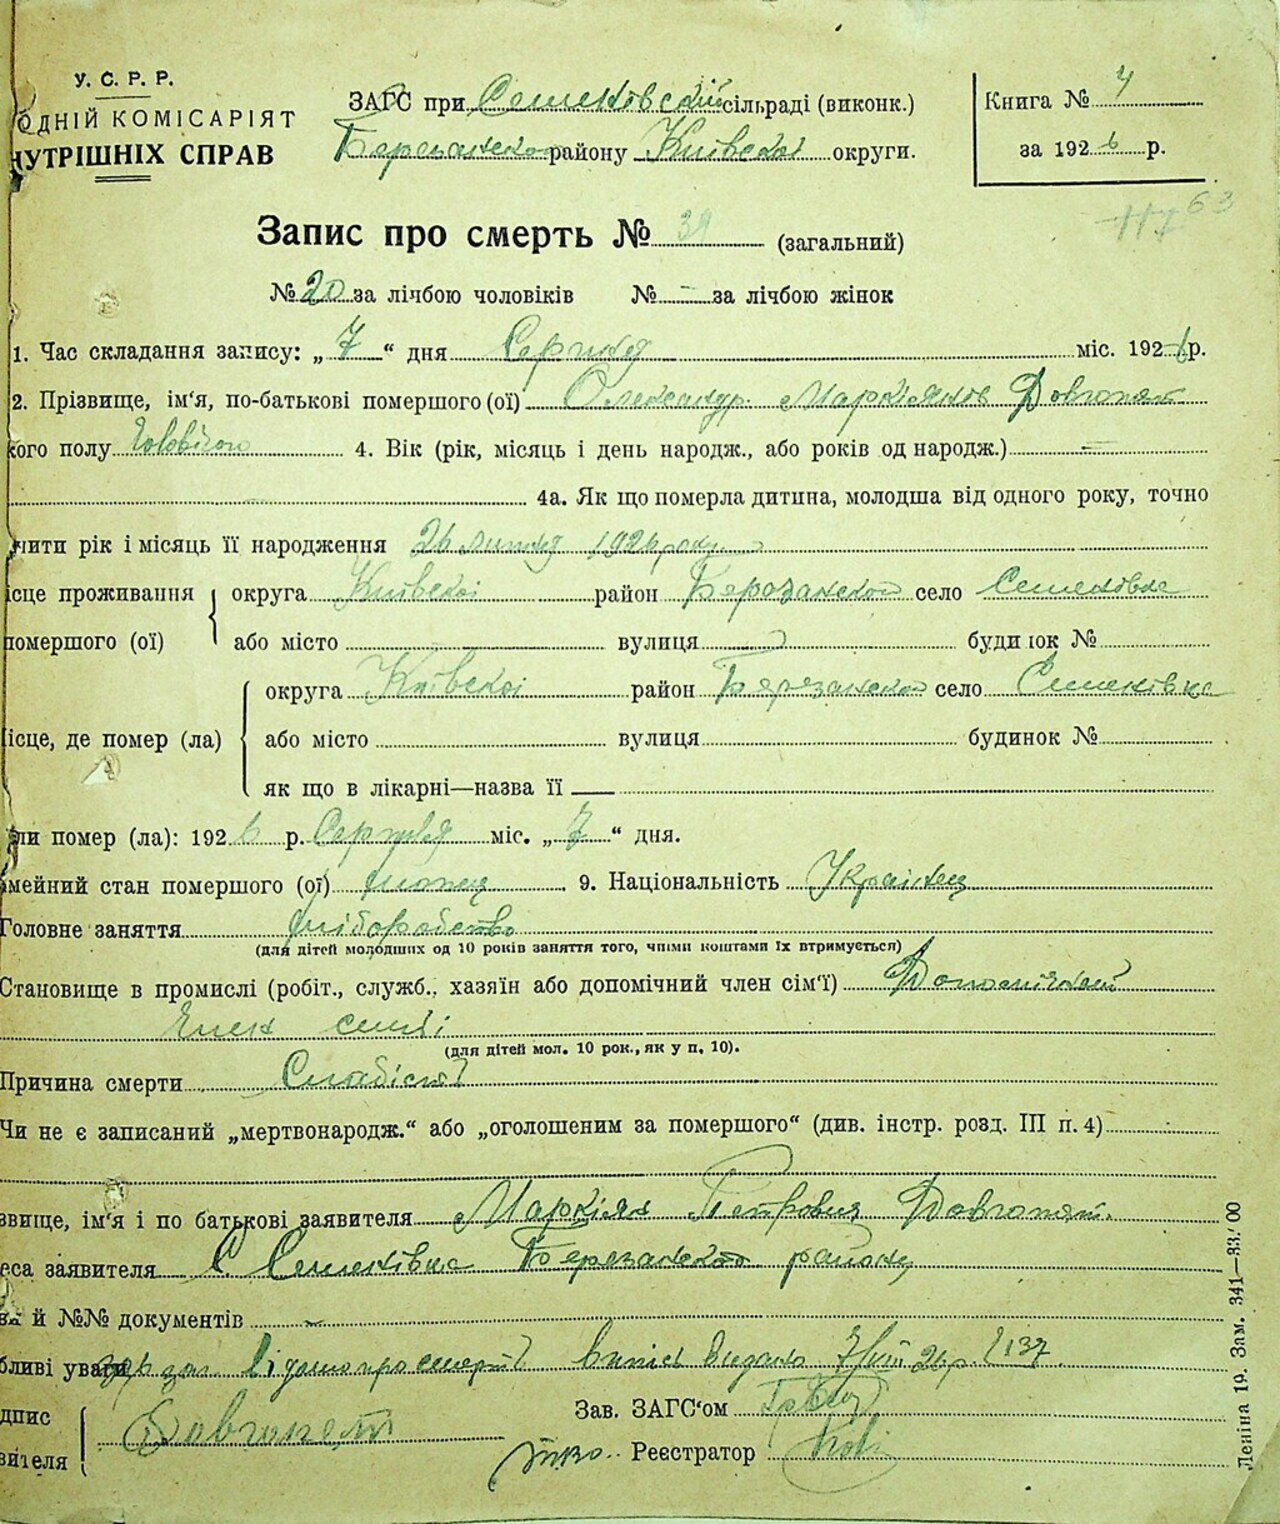 У. С. Р. Р.
ОДНІЙ КОМІСАРІЯТ
НУТРІШНІХ СПРАВ
ЗАГС при Семеновській сільраді (виконк.)
Березанского району Київскої округи.
Книга № 4
за 1926 р.
63
117
Запис про смерть № 39 (загальний)
№ 20 за лічбою чоловіків № - за лічбою жінок
1. Час складання запису: „7“ дня Серпня міс. 1926 р.
2. Прізвище, ім'я, по-батькові помершого (ої) Олександр Маркіянов Довгопят
кого полу чоловічого 4. Вік (рік, місяць і день народж., або років од народж.) —
4а. Як що померла дитина, молодша від одного року, точно
чити рік і місяць її народження 26 липня 1926 року
ісце проживання округа Київскоі район Березанской село Семеновка
помершого (ої) або місто вулиця будинок №
округа Київскоі район Березанской село Семенівка
ісце, де помер (ла) або місто вулиця будинок №
як що в лікарні—назва її —
ли помер (ла): 1926 р. Серпня міс. „7“ дня.
імейний стан помершого (ої) 9. Національність Українец
Головне заняття хліборобство
(для дітей молодших од 10 років заняття того, чиїми коштами їх втримується)
Становище в промислі (робіт., служб., хазяїн або допомічний член сім'ї) Допомічний
член семї
(для дітей мол. 10 рок., як у п. 10).
Причина смерти Слабість
Чи не є записаний „мертвонародж.“ або „оголошеним за помершого“ (див. інстр. розд. III п. 4)
звище, ім'я і по батькові заявителя Маркіян Петрович Довгопят.
еса заявителя С. Семенівка Березанского району
ва й №№ документів —
бливі уваги про смерть Випись видано 7/VIII 26 р. 137
дпис Довгопят
вителя
Зав. ЗАГС'ом
Реєстратор
Леніна 19. Зам. 341—33.'00